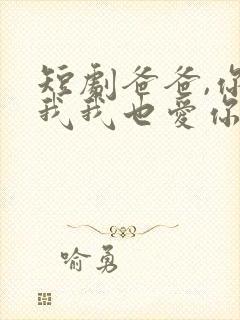 短剧爸爸,你
我我也爱你
喻勇